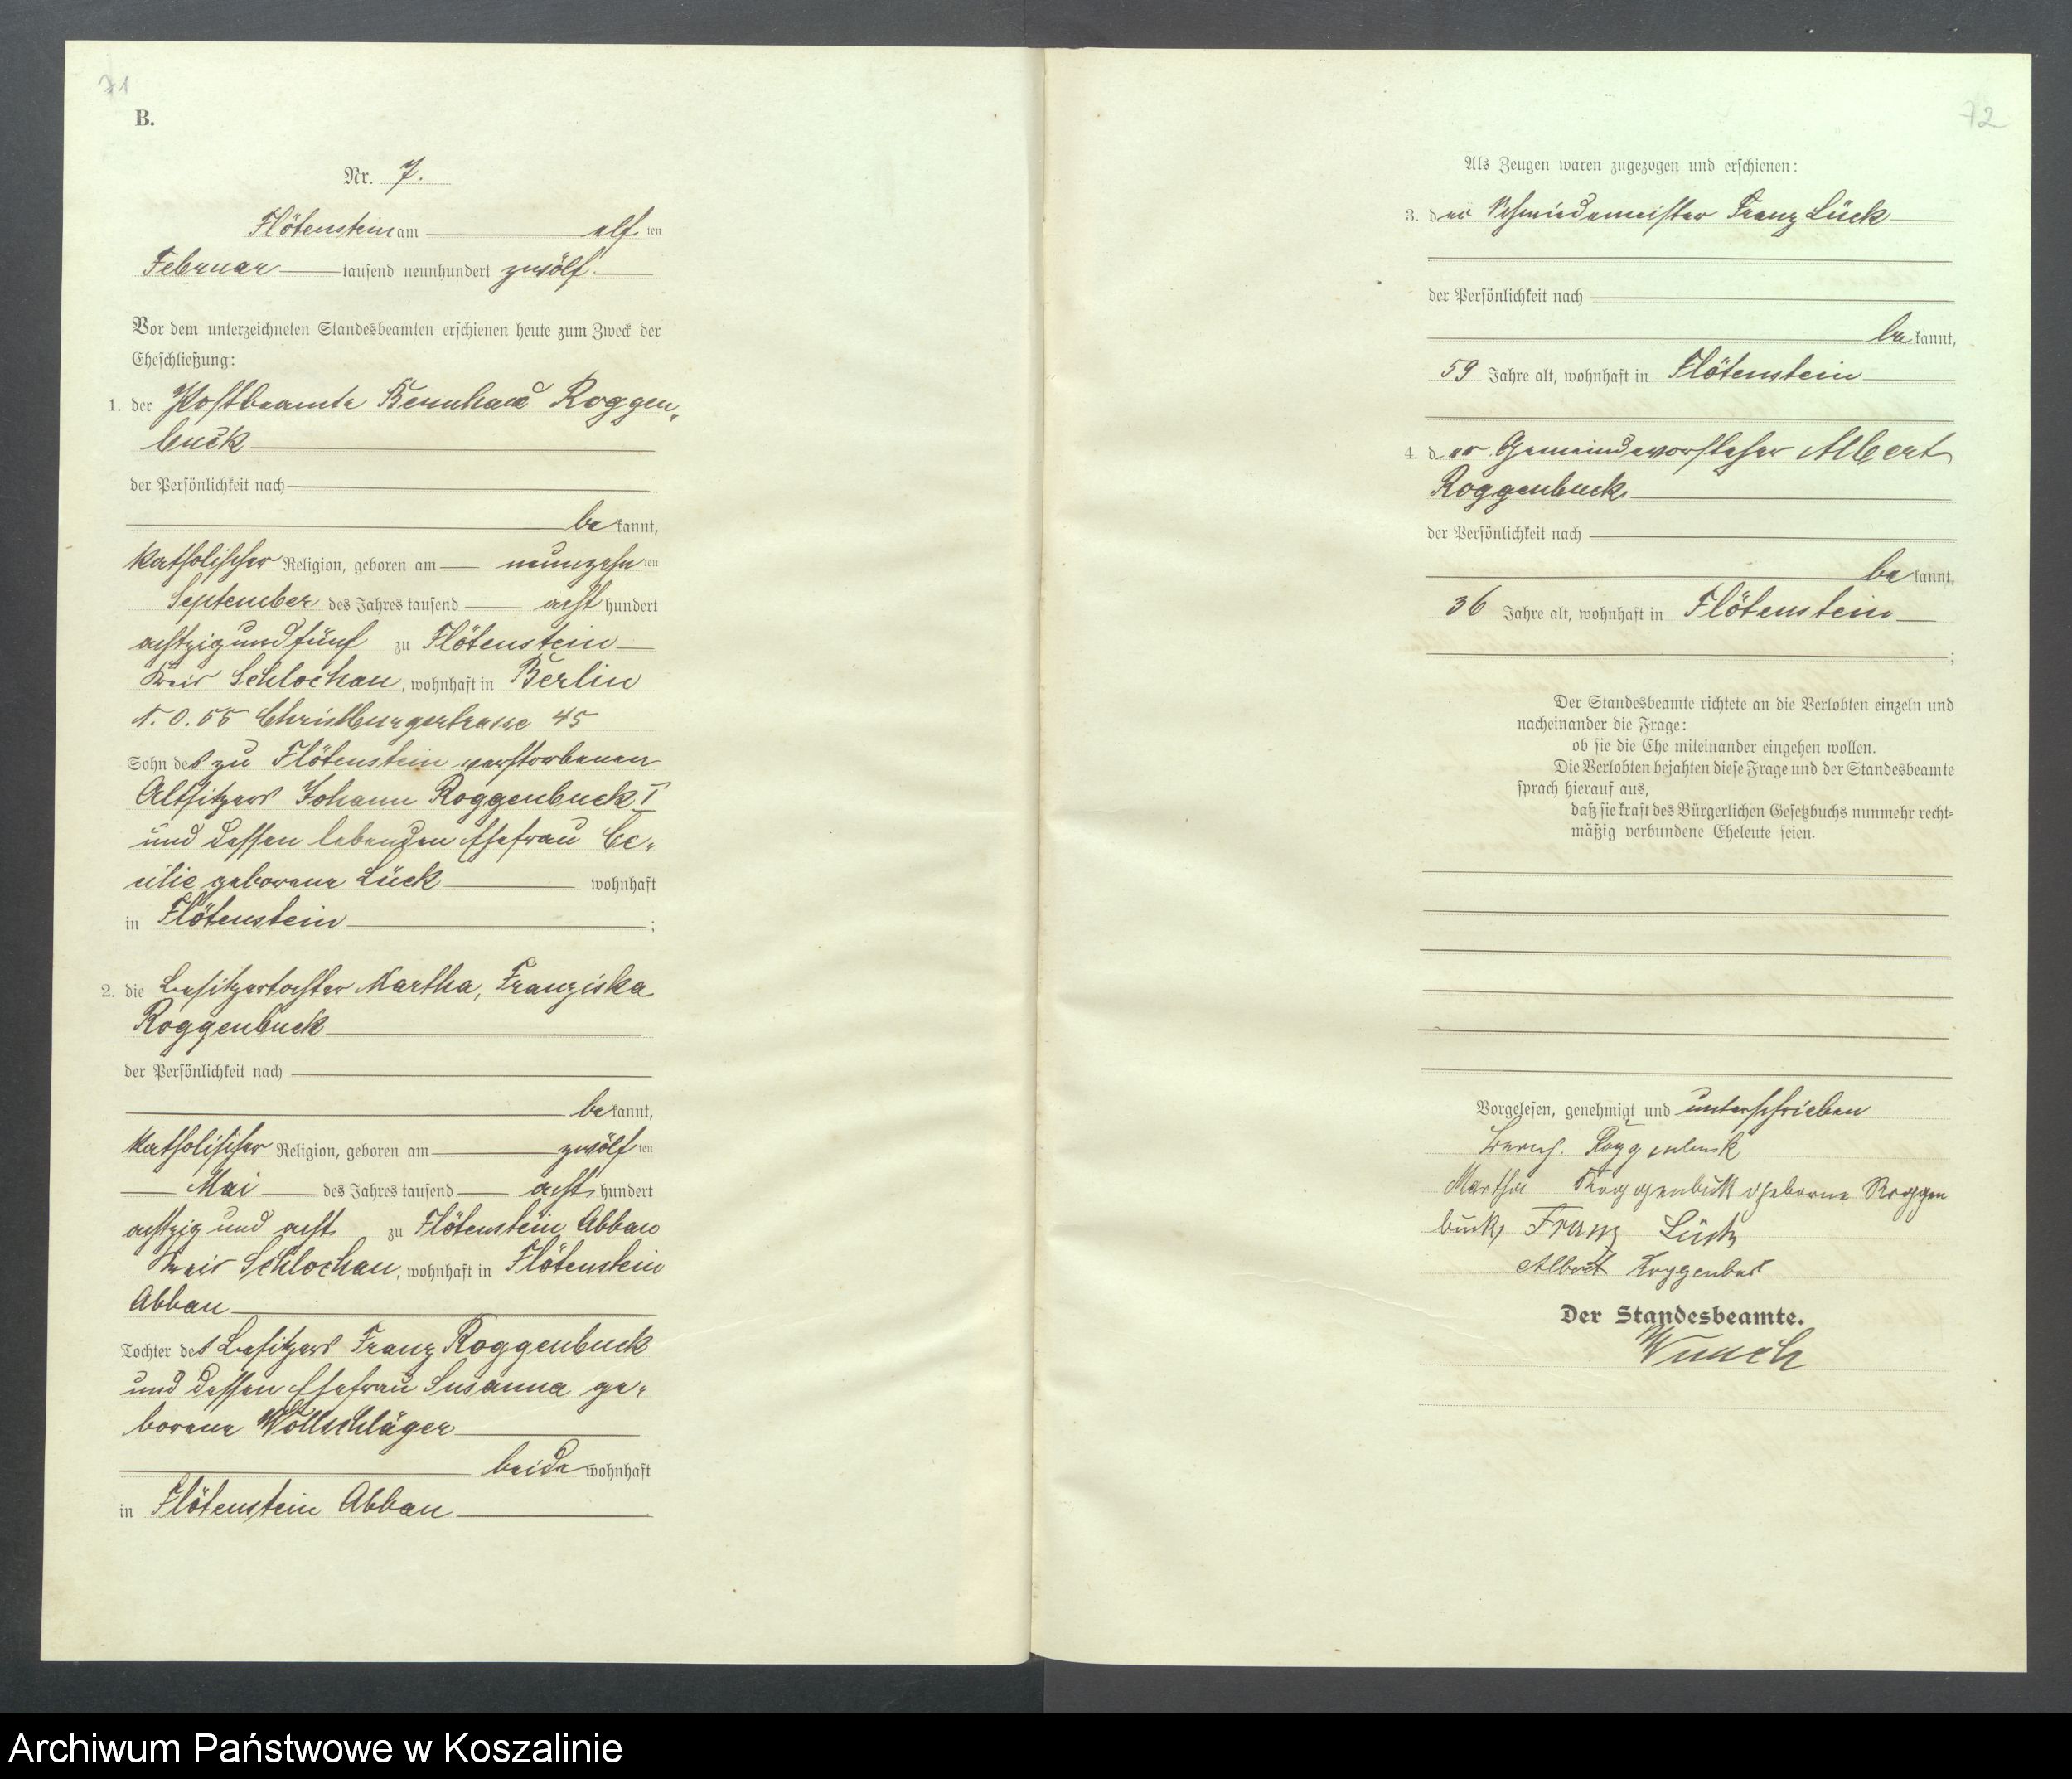 71
B.
Nr. 7.
Flötenstein am elf ten
Februar tausend neunhundert zwölf
Vor dem unterzeichneten Standesbeamten erschienen heute zum Zweck der
Eheschließung:
1. der Postbeamte Bernhard Roggen„
buck
der Persönlichkeit nach
be kannt,
katholischer Religion, geboren am neunzehn ten
September des Jahres tausend acht hundert
achtzig und fünf zu Flötenstein
Kreis Schlochau, wohnhaft in Berlin
N. O. 55 Christburgerstrasse 45
Sohn des zu Flötenstein verstorbenen
Altsitzers Johann Roggenbuck I
und dessen lebenden Ehefrau Ce„
cilie geborene Lück wohnhaft
in Flötenstein ;
2. die Besitzertochter Martha, Franziska
Roggenbuck
der Persönlichkeit nach
be kannt,
katholischer Religion, geboren am zwölf ten
Mai des Jahres tausend acht hundert
achtzig und acht zu Flötenstein Abbau
Kreis Schlochau, wohnhaft in Flötenstein
Abbau
Tochter des Besitzers Franz Roggenbuck
und dessen Ehefrau Susanna ge„
borene Wollschläger
beide wohnhaft
in Flötenstein Abbau .
72
Als Zeugen waren zugezogen und erschienen:
3. der Schmiedemeister Franz Lück
der Persönlichkeit nach
be kannt,
59 Jahre alt, wohnhaft in Flötenstein
4. der Gemeindevorsteher Albert
Roggenbuck
der Persönlichkeit nach
be kannt,
36 Jahre alt, wohnhaft in Flötenstein
;
Der Standesbeamte richtete an die Verlobten einzeln und
nacheinander die Frage:
ob sie die Ehe miteinander eingehen wollen.
Die Verlobten bejahten diese Frage und der Standesbeamte
sprach hierauf aus,
daß sie kraft des Bürgerlichen Gesetzbuchs nunmehr recht=
mäßig verbundene Eheleute seien.
Vorgelesen, genehmigt und unterschrieben
Bernh. Roggenbuck
Martha Roggenbuck geborne Roggen
buck Franz Lück
Albert Roggenbuck
Der Standesbeamte.
Archiwum Państwowe w Koszalinie